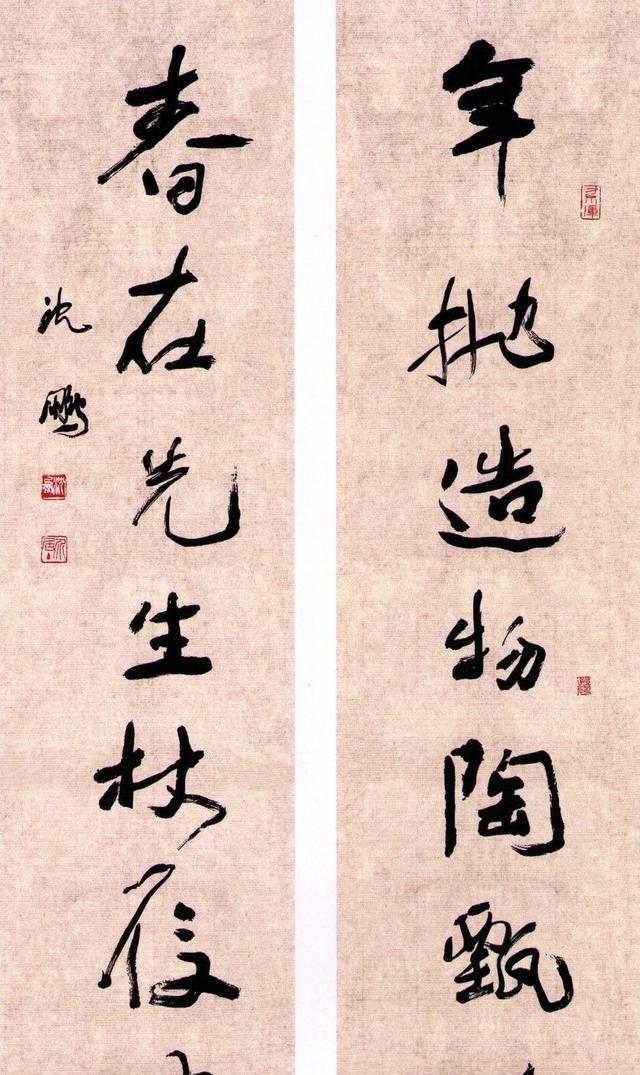 年抛造物陶甄
春在先生杖履
沈鹏